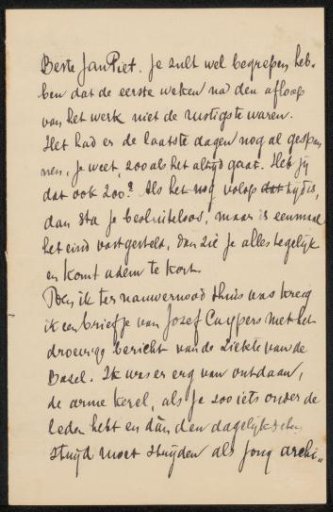 Beste Jan Piet. Je zult wel begrepen heb-
ben dat de eerste weken na den afloop
van het werk niet de rustigste waren.
Het had er de laatste dagen nog al gespan
nen, je weet, zoo als het altijd gaat. Heb jij
dat ook zoo? Als het nog volop tijd is,
dan sta je besluiteloos, maar is eenmaal
het eind vastgesteld, dan zie je alles tegelijk
en komt adem te kort.
Toen ik ter nauwernood thuis was kreeg
ik een briefje van Jozef Cuypers met het
droevige bericht van de ziekte van de
Bazel. Ik was er erg van ontdaan,
de arme kerel, als je zoo iets onder de
leden hebt en dàn den dagelijkschen
strijd moet strijden als jong archi-